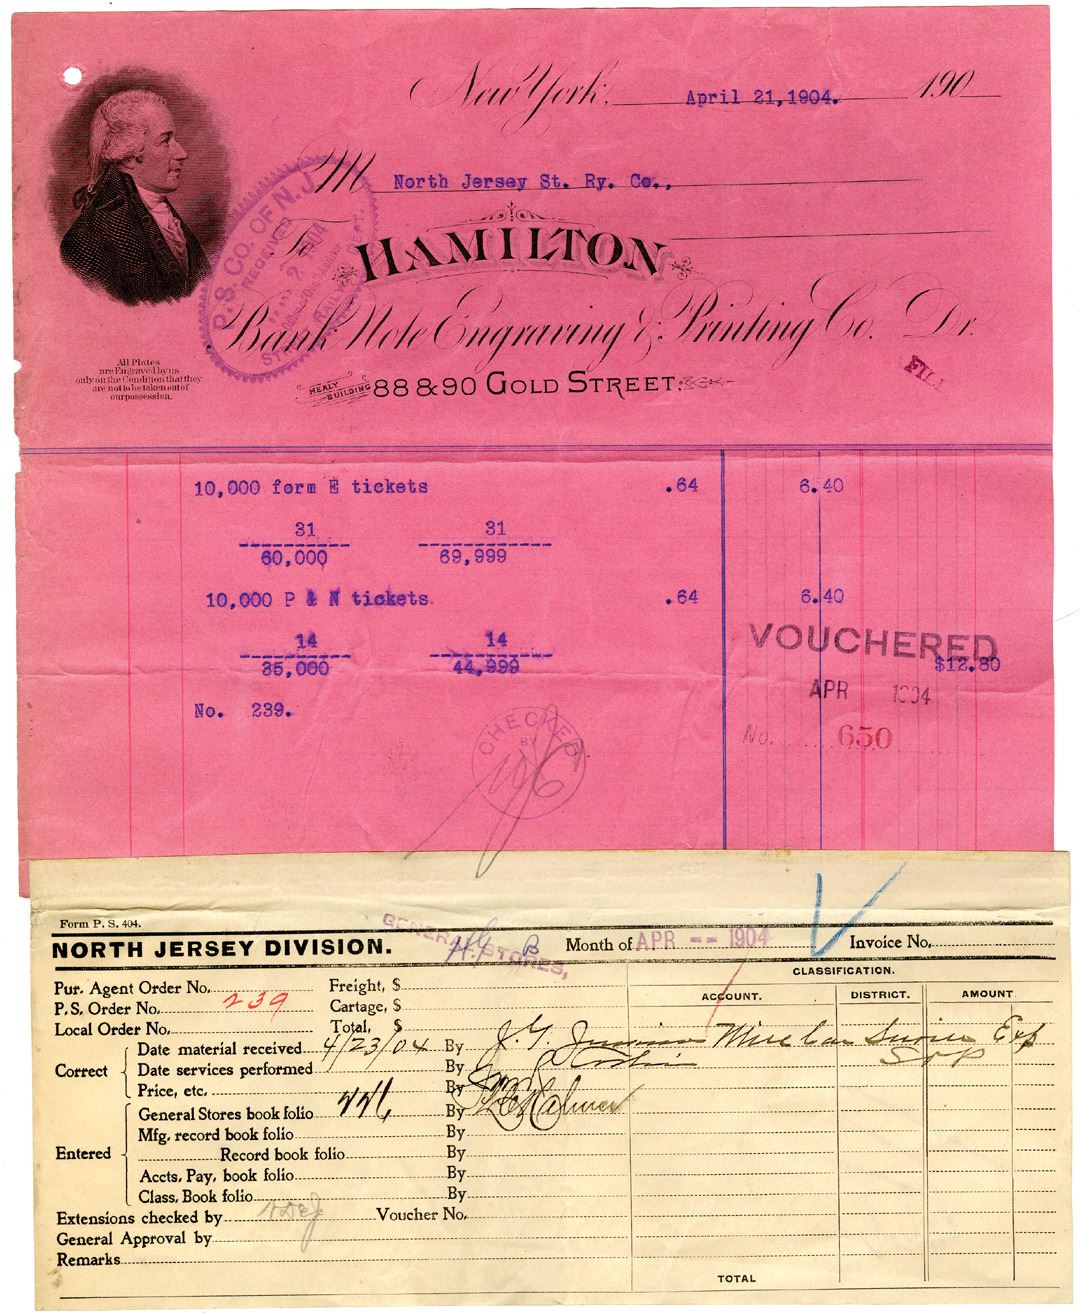 New York, April 21, 1904. 190
M North Jersey St. Ry. Co.,
P.S. CO. OF N.J.
RECEIVED
2 1904
STREET RAILWAY DEPT.
To
HAMILTON
Bank Note Engraving & Printing Co. Dr.
All Plates
are Engraved by us
only on the Condition that they
are not to be taken out of
our possession.
HEALY BUILDING 88 & 90 GOLD STREET.
10,000 form E tickets .64 6.40
31 31
60,000 69,999
10,000 P & N tickets .64 6.40
14 14
35,000 44,999
VOUCHERED
$12.80
APR 1904
No. 239.
No. 650
CHECKED
BY
Form P. S. 404.
GENERAL STORES,
NORTH JERSEY DIVISION. B Month of APR -- 1904 Invoice No.
CLASSIFICATION.
Pur. Agent Order No. Freight, $
ACCOUNT. DISTRICT. AMOUNT
P.S. Order No. 239 Cartage, $
Local Order No. Total, $
Correct
Date material received 4/23/04 By J. Exp
Date services performed By
Price, etc. By
Entered
General Stores book folio 446 By
Mfg. record book folio By
Record book folio By
Accts, Pay, book folio By
Class, Book folio By
Extensions checked by Voucher No.
General Approval by
Remarks
TOTAL